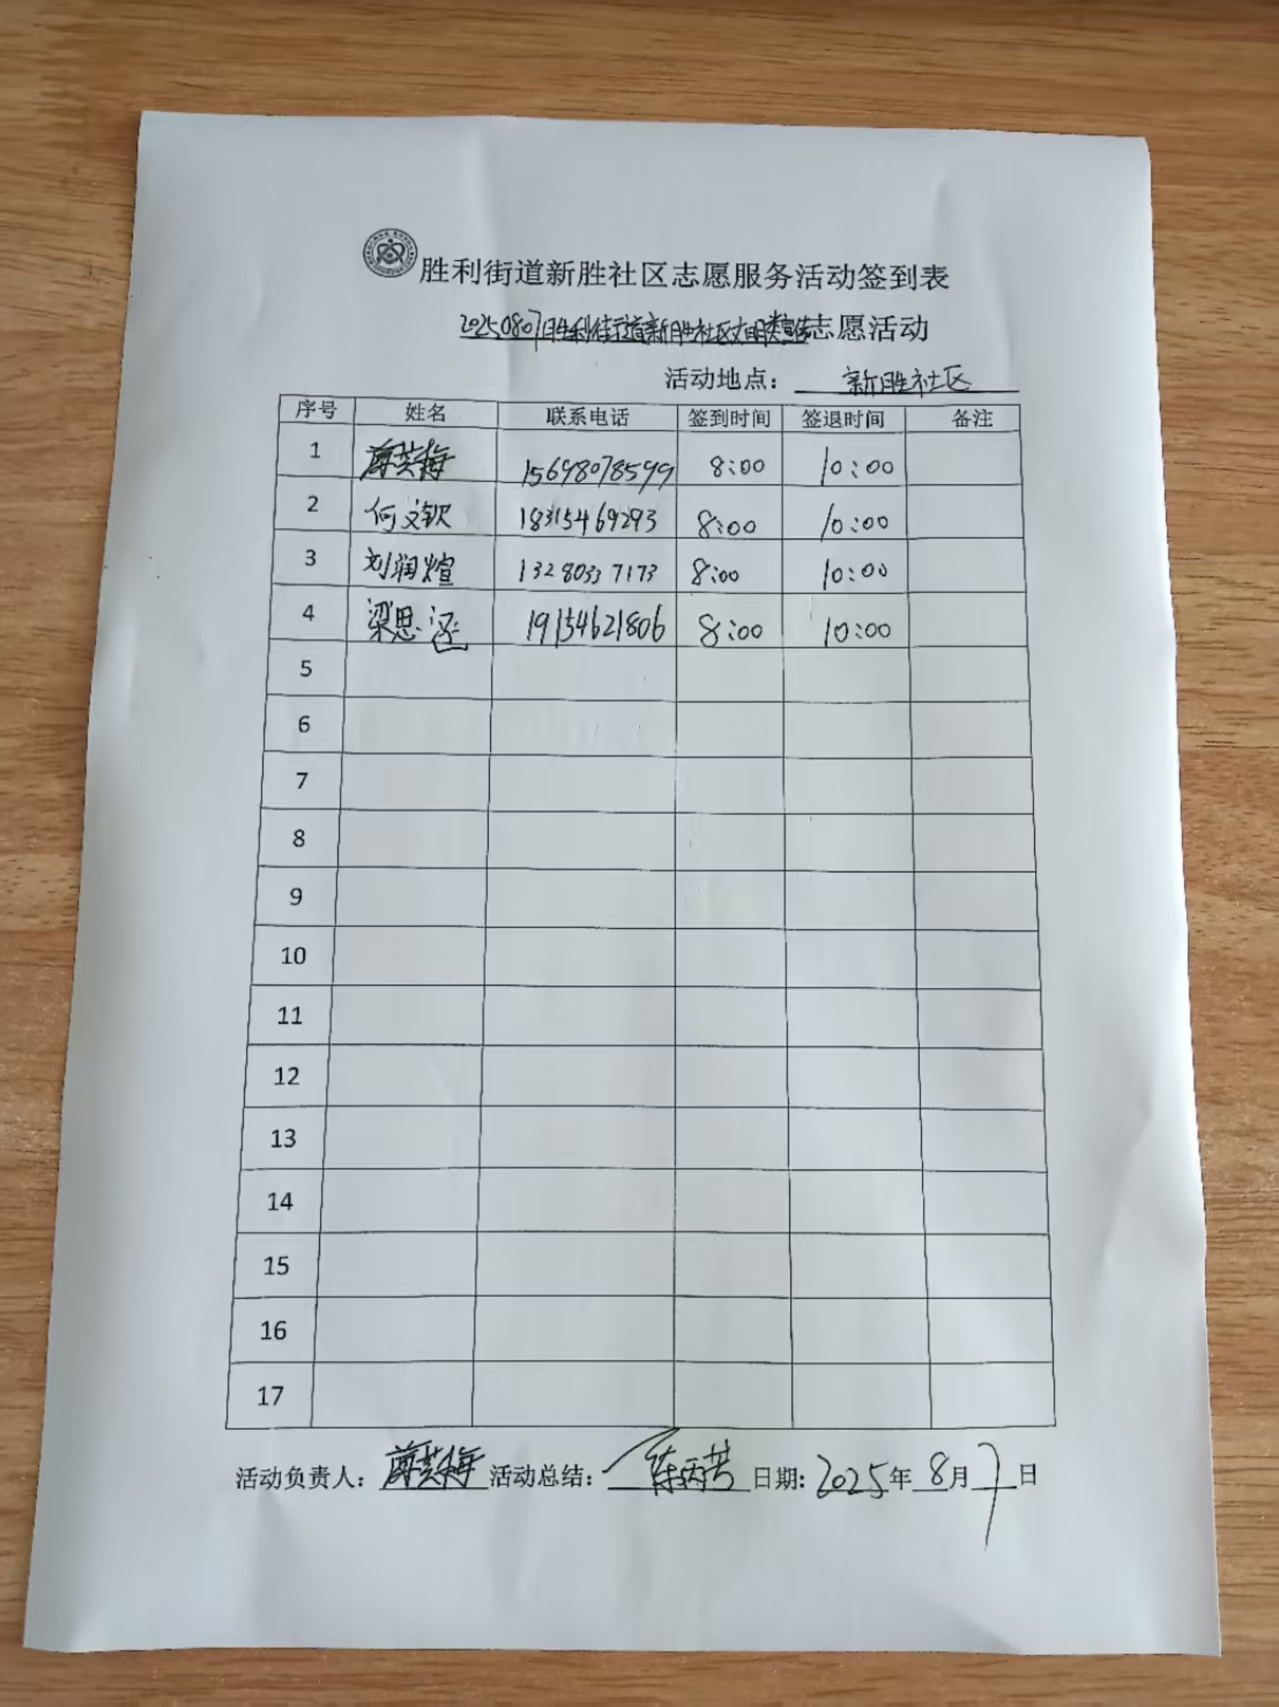 胜利街道新胜社区志愿服务活动签到表
20250807胜利街道新胜社区文明类宣传志愿活动
活动地点： 新胜社区
序号 姓名 联系电话 签到时间 签退时间 备注
1 15698078599 8:00 10:00
2 何文钦 18315469293 8:00 10:00
3 刘润煊 13280337173 8:00 10:00
4 梁思涵 19154621806 8:00 10:00
5
6
7
8
9
10
11
12
13
14
15
16
17
活动负责人： 活动总结： 日期：2025年8月7日